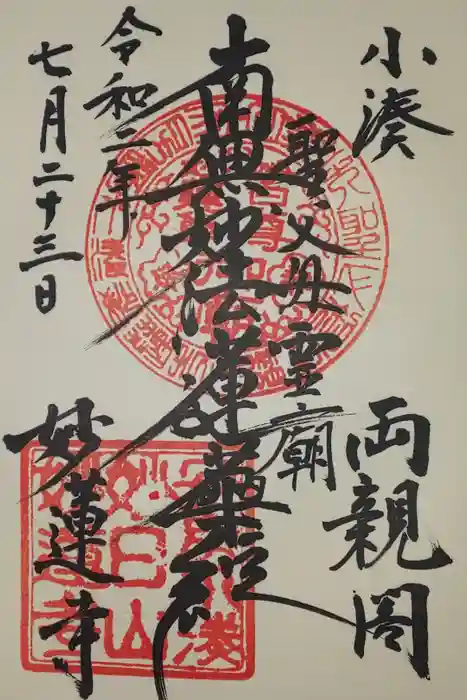 小湊
両親閣
聖父母霊廟
南無妙法蓮華経
令和二年
七月二十三日
妙蓮寺